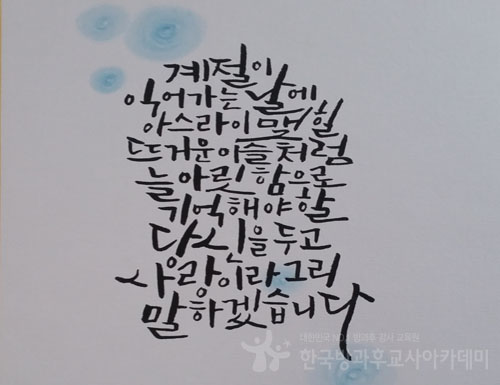 계절이
익어가는 날에
아스라이 맺힐
뜨거운 이슬처럼
늘 아릿함으로
기억해야 할
당신을 두고
사랑이라 그리
말하겠습니다
대한민국 NO.1 방과후 강사 교육원
한국방과후교사아카데미